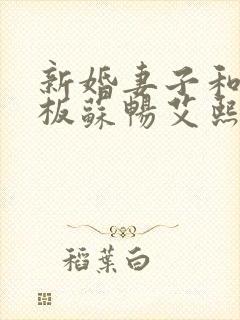 新婚妻子和
板蘇暢艾熙
稻葉白